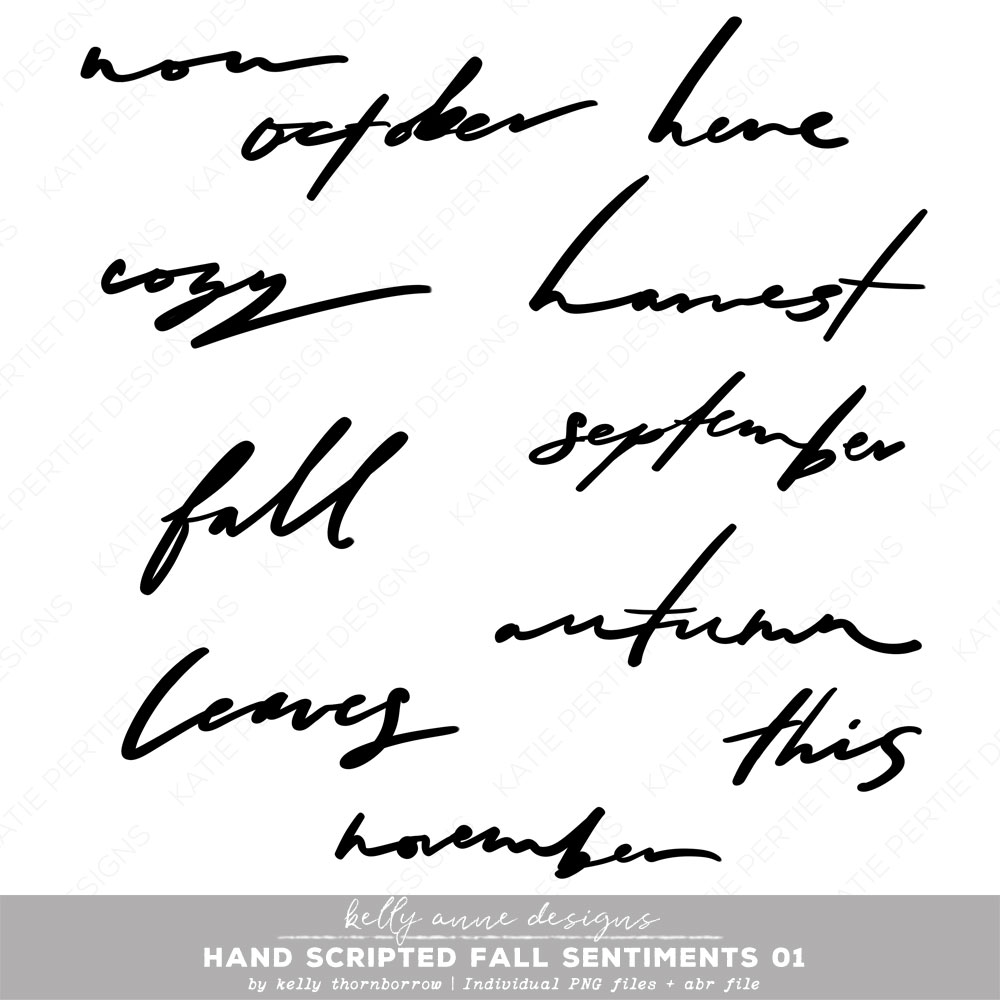 now
october
here
cozy
harvest
september
fall
autumn
leaves
this
november
kelly anne designs
HAND SCRIPTED FALL SENTIMENTS 01
by kelly thornborrow | Individual PNG files + abr file
KATIE PERTIET DESIGNS